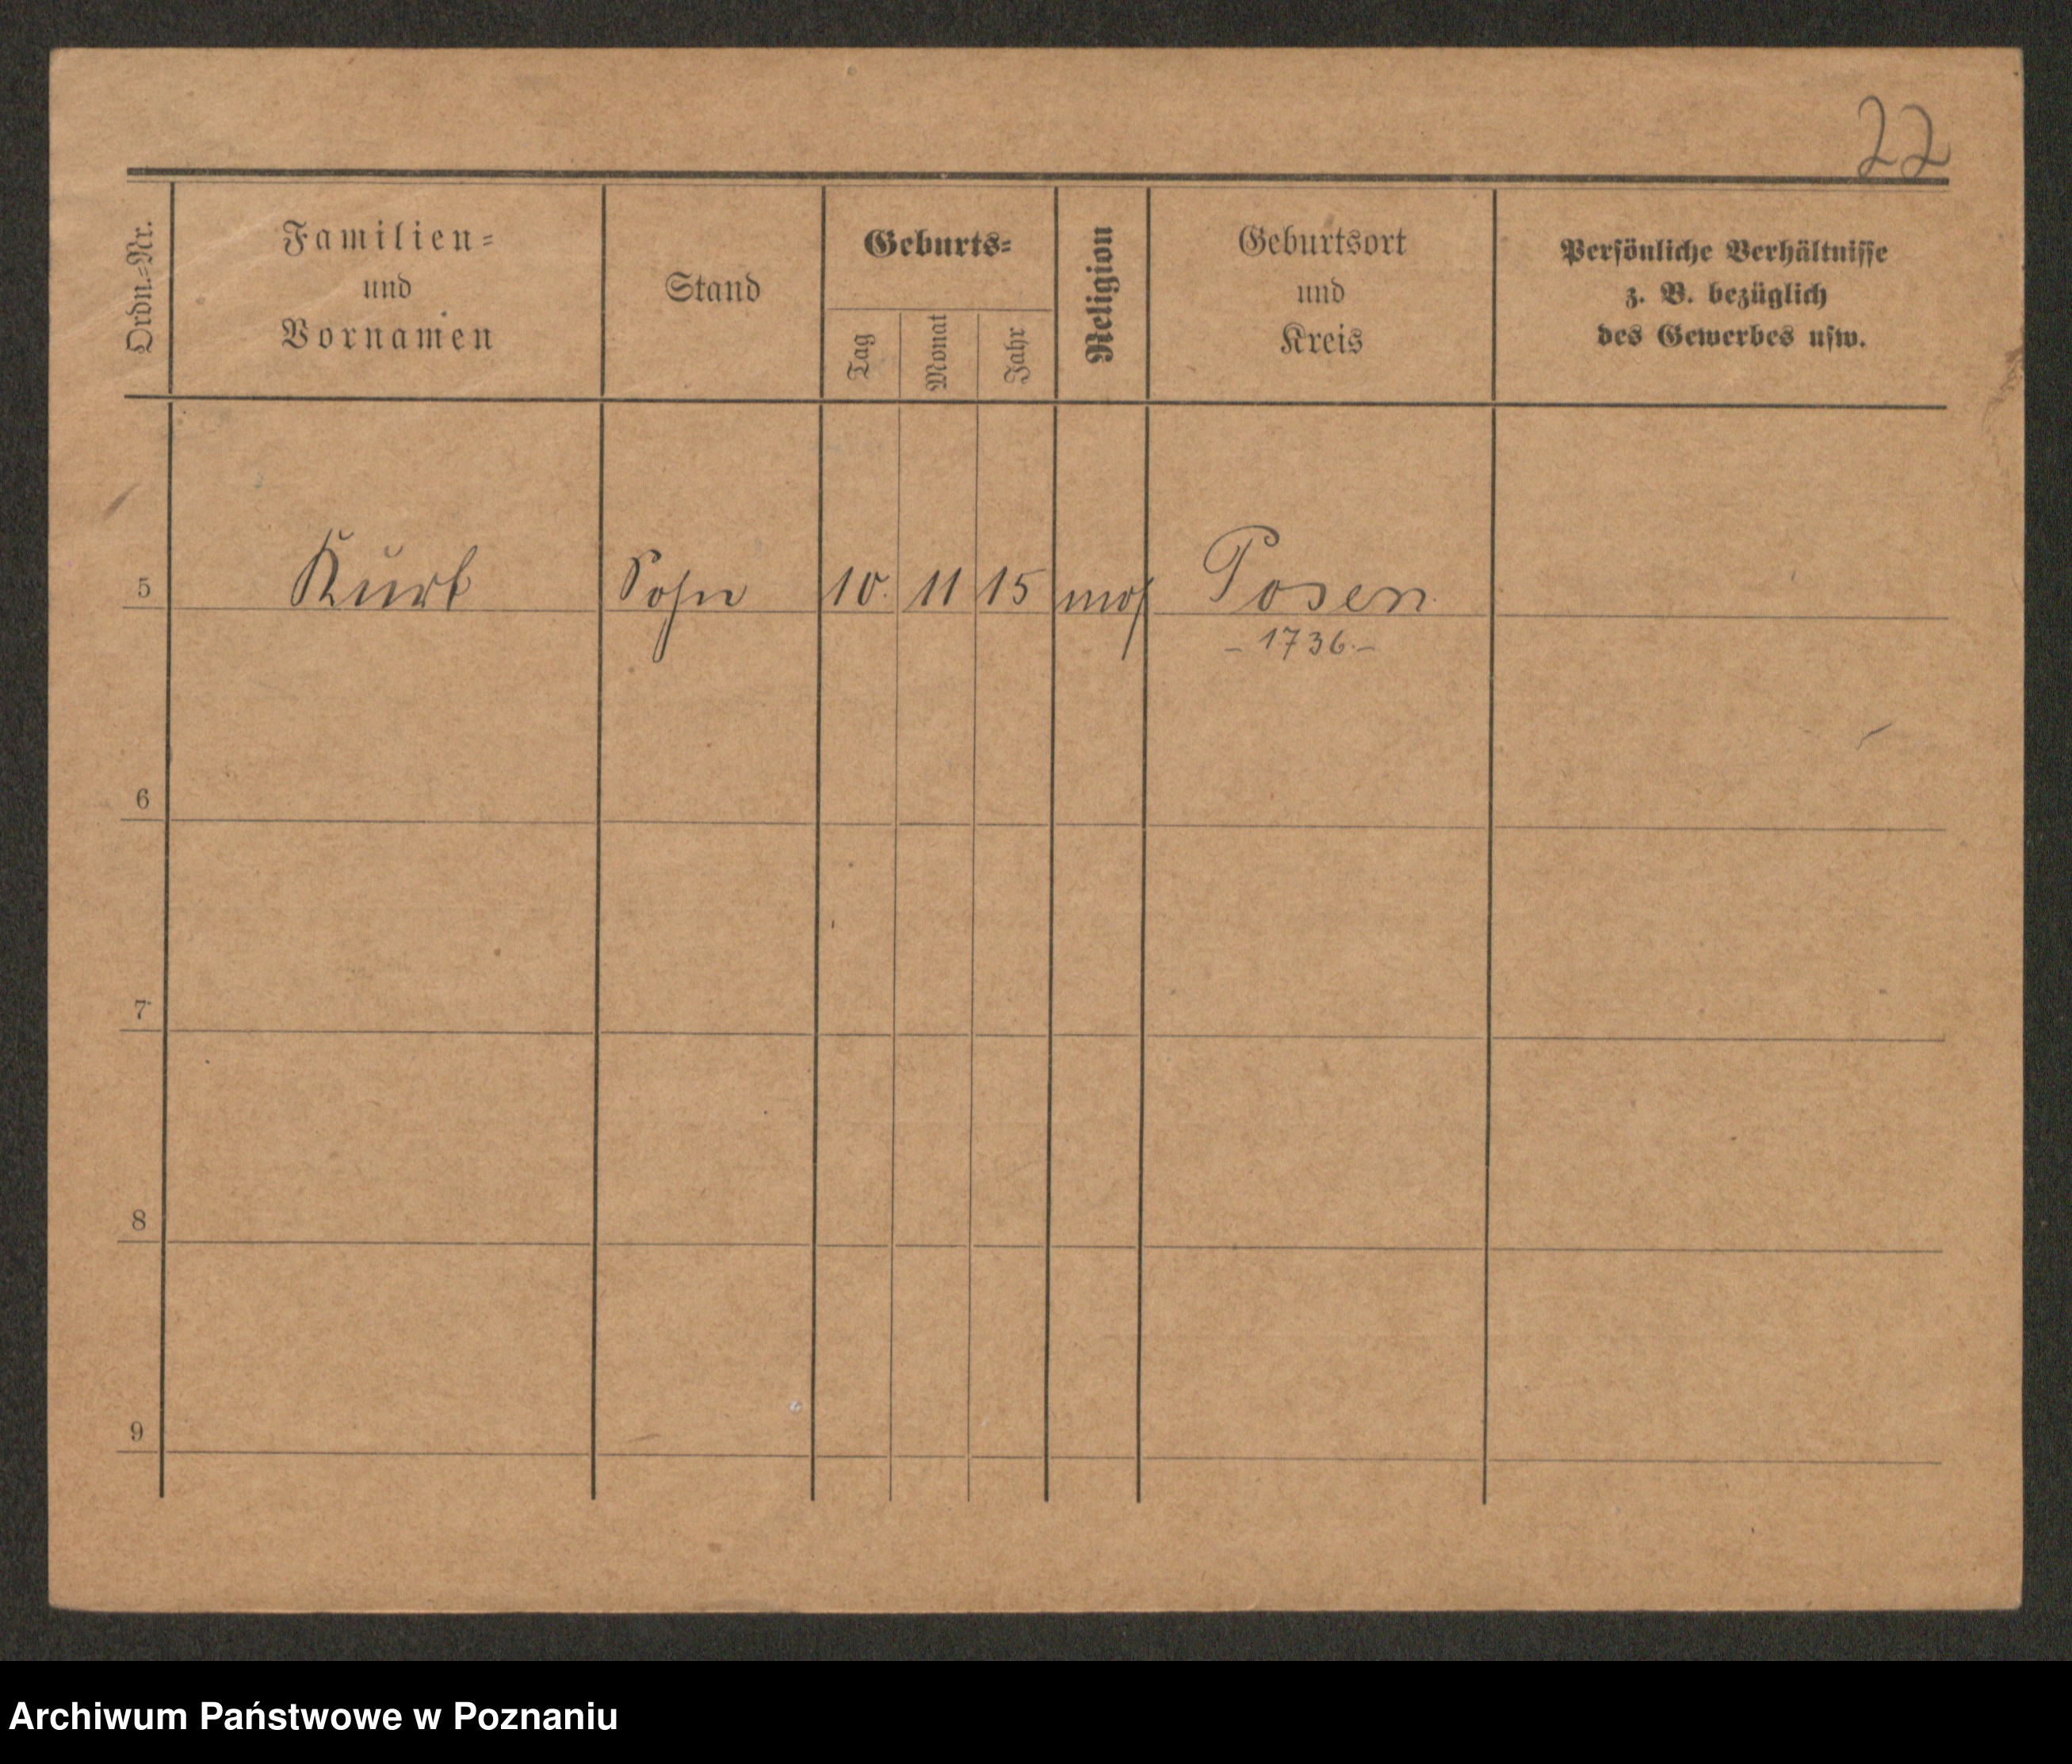 22
Ordn.-Nr.
Familien-
und
Vornamen
Stand
Geburts-
Tag
Monat
Jahr
Religion
Geburtsort
und
Kreis
Persönliche Verhältnisse
z. B. bezüglich
des Gewerbes usw.
5 Kurt Sohn 10. 11 15 mos Posen
- 1736. -
6
7
8
9
Archiwum Państwowe w Poznaniu